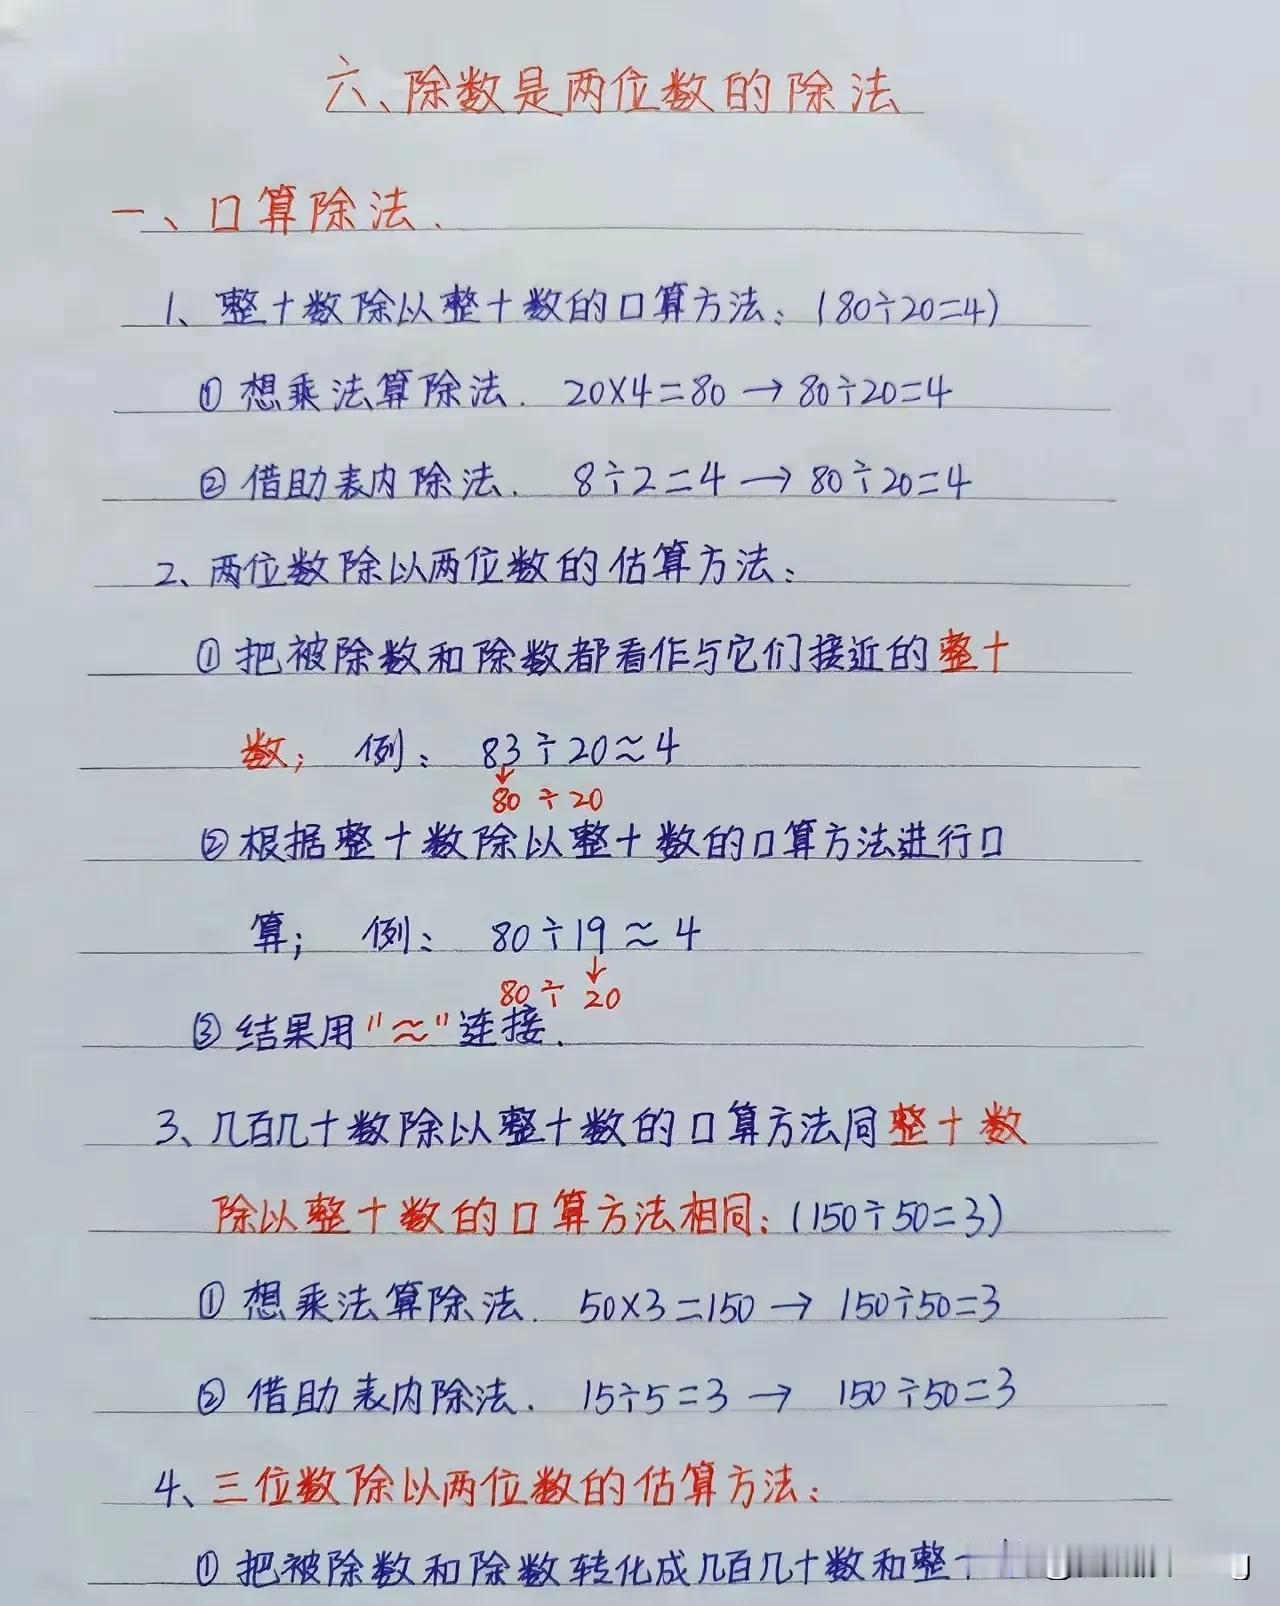 六、除数是两位数的除法
一、口算除法.
1、整十数除以整十数的口算方法：(80÷20=4)
① 想乘法算除法. 20×4=80 → 80÷20=4
② 借助表内除法. 8÷2=4 → 80÷20=4
2、两位数除以两位数的估算方法：
① 把被除数和除数都看作与它们接近的整十
数； 例： 83÷20≈4
↓
80 ÷ 20
② 根据整十数除以整十数的口算方法进行口
算； 例： 80÷19≈4
↓
80 ÷ 20
③ 结果用"≈"连接.
3、几百几十数除以整十数的口算方法同整十数
除以整十数的口算方法相同：(150÷50=3)
① 想乘法算除法. 50×3=150 → 150÷50=3
② 借助表内除法. 15÷5=3 → 150÷50=3
4、三位数除以两位数的估算方法：
① 把被除数和除数转化成几百几十数和整